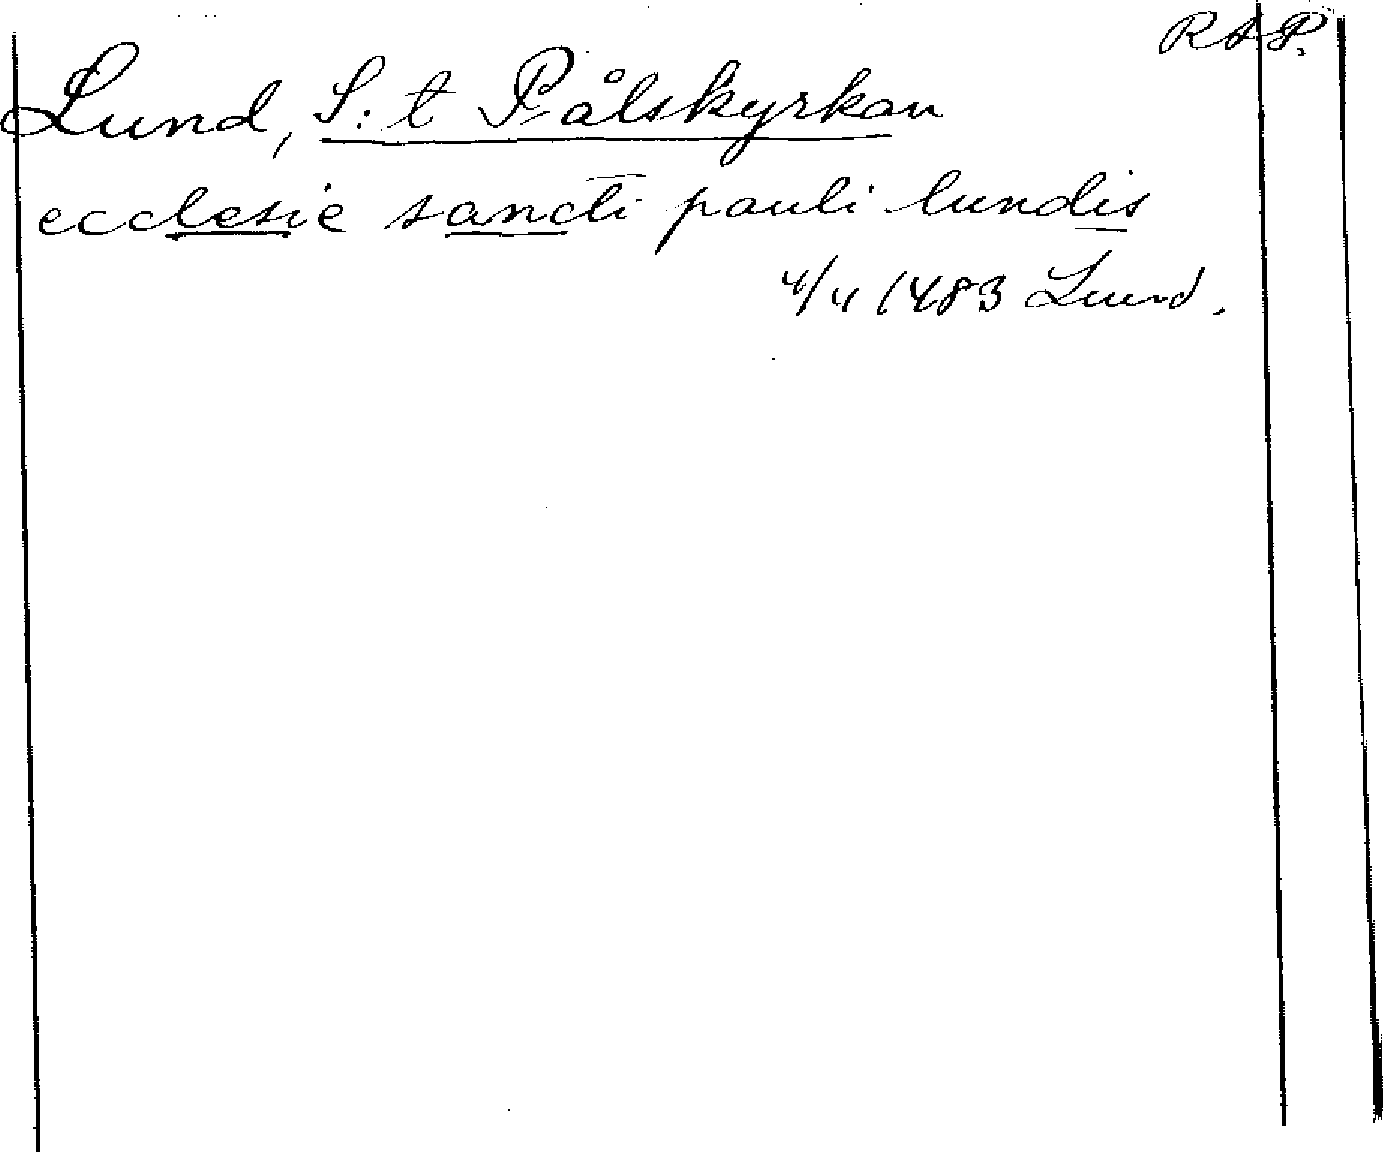 RAP.
Lund, S:t Pålskyrkan
ecclesie sancti pauli lundis
4/4 1483 Lund.